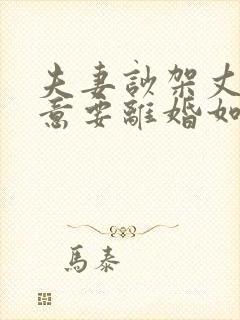 夫妻訟架丈
意要離婚如
馬泰